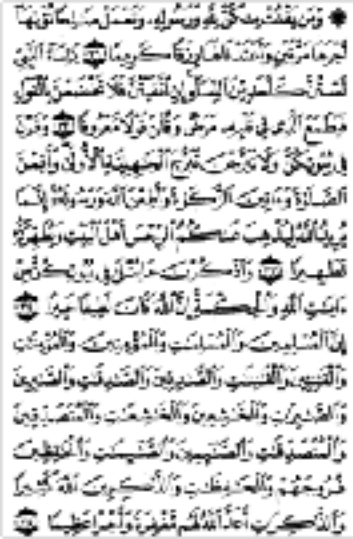 ۞ وَمَن يَقْنُتْ مِنكُنَّ لِلَّهِ وَرَسُولِهِۦ وَتَعْمَلْ صَٰلِحًا نُّؤْتِهَآ
أَجْرَهَا مَرَّتَيْنِ وَأَعْتَدْنَا لَهَا رِزْقًا كَرِيمًا ٣١ يَٰنِسَآءَ ٱلنَّبِىِّ
لَسْتُنَّ كَأَحَدٍ مِّنَ ٱلنِّسَآءِ إِنِ ٱتَّقَيْتُنَّ فَلَا تَخْضَعْنَ بِٱلْقَوْلِ
فَيَطْمَعَ ٱلَّذِى فِى قَلْبِهِۦ مَرَضٌ وَقُلْنَ قَوْلًا مَّعْرُوفًا ٣٢ وَقَرْنَ
فِى بُيُوتِكُنَّ وَلَا تَبَرَّجْنَ تَبَرُّجَ ٱلْجَٰهِلِيَّةِ ٱلْأُولَىٰ وَأَقِمْنَ
ٱلصَّلَوٰةَ وَءَاتِينَ ٱلزَّكَوٰةَ وَأَطِعْنَ ٱللَّهَ وَرَسُولَهُۥٓ إِنَّمَا
يُرِيدُ ٱللَّهُ لِيُذْهِبَ عَنكُمُ ٱلرِّجْسَ أَهْلَ ٱلْبَيْتِ وَيُطَهِّرَكُمْ
تَطْهِيرًا ٣٣ وَٱذْكُرْنَ مَا يُتْلَىٰ فِى بُيُوتِكُنَّ مِنْ
ءَايَٰتِ ٱللَّهِ وَٱلْحِكْمَةِ إِنَّ ٱللَّهَ كَانَ لَطِيفًا خَبِيرًا ٣٤
إِنَّ ٱلْمُسْلِمِينَ وَٱلْمُسْلِمَٰتِ وَٱلْمُؤْمِنِينَ وَٱلْمُؤْمِنَٰتِ
وَٱلْقَٰنِتِينَ وَٱلْقَٰنِتَٰتِ وَٱلصَّٰدِقِينَ وَٱلصَّٰدِقَٰتِ وَٱلصَّٰبِرِينَ
وَٱلصَّٰبِرَٰتِ وَٱلْخَٰشِعِينَ وَٱلْخَٰشِعَٰتِ وَٱلْمُتَصَدِّقِينَ
وَٱلْمُتَصَدِّقَٰتِ وَٱلصَّٰٓئِمِينَ وَٱلصَّٰٓئِمَٰتِ وَٱلْحَٰفِظِينَ
فُرُوجَهُمْ وَٱلْحَٰفِظَٰتِ وَٱلذَّٰكِرِينَ ٱللَّهَ كَثِيرًا
وَٱلذَّٰكِرَٰتِ أَعَدَّ ٱللَّهُ لَهُم مَّغْفِرَةً وَأَجْرًا عَظِيمًا ٣٥